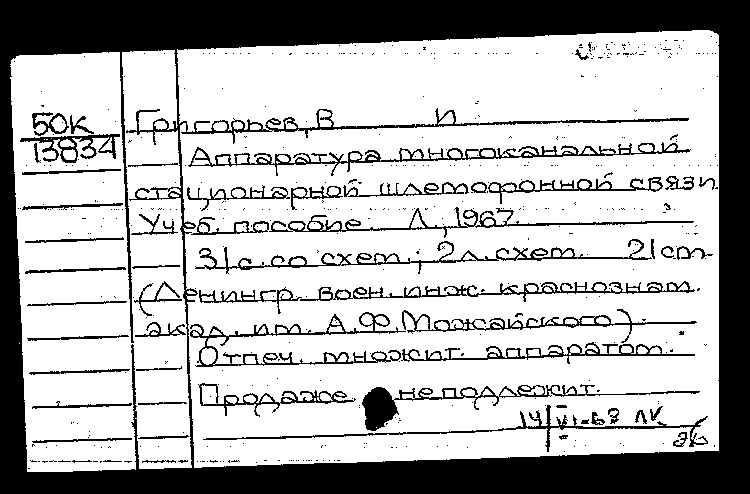 50К
13834
Григорьев, В И
Аппаратура многоканальной
стационарной шлемофонной связи
Учеб. пособие. Л., 1967.
31с. со схем.; 2л. схем. 21см.
(Ленингр. воен. инж. краснознам.
акад. им. А.Ф.Можайского).
Отпеч. множит. аппаратом.
Продаже не подлежит.
14/VI-68 ЛК